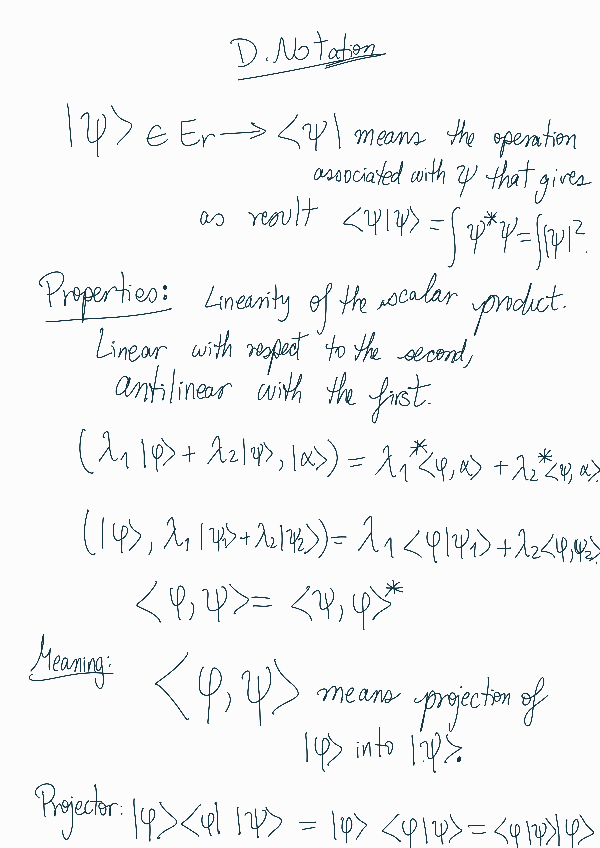 D. Notation
|ψ> ∈ Er → <ψ| means the operation
associated with ψ that gives
as result <ψ|ψ> = ∫ψ*ψ = ∫|ψ|².
Properties: Linearity of the scalar product.
Linear with respect to the second,
antilinear with the first.
(λ₁|φ> + λ₂|ψ>, |α>) = λ₁*<φ,α> + λ₂*<ψ,α>
(|φ>, λ₁|ψ₁> + λ₂|ψ₂>) = λ₁<φ|ψ₁> + λ₂<φ,ψ₂>
<φ,ψ> = <ψ,φ>*
Meaning: <φ,ψ> means projection of
|φ> into |ψ>.
Projector: |φ><φ| |ψ> = |φ> <φ|ψ> = <φ|ψ>|φ>